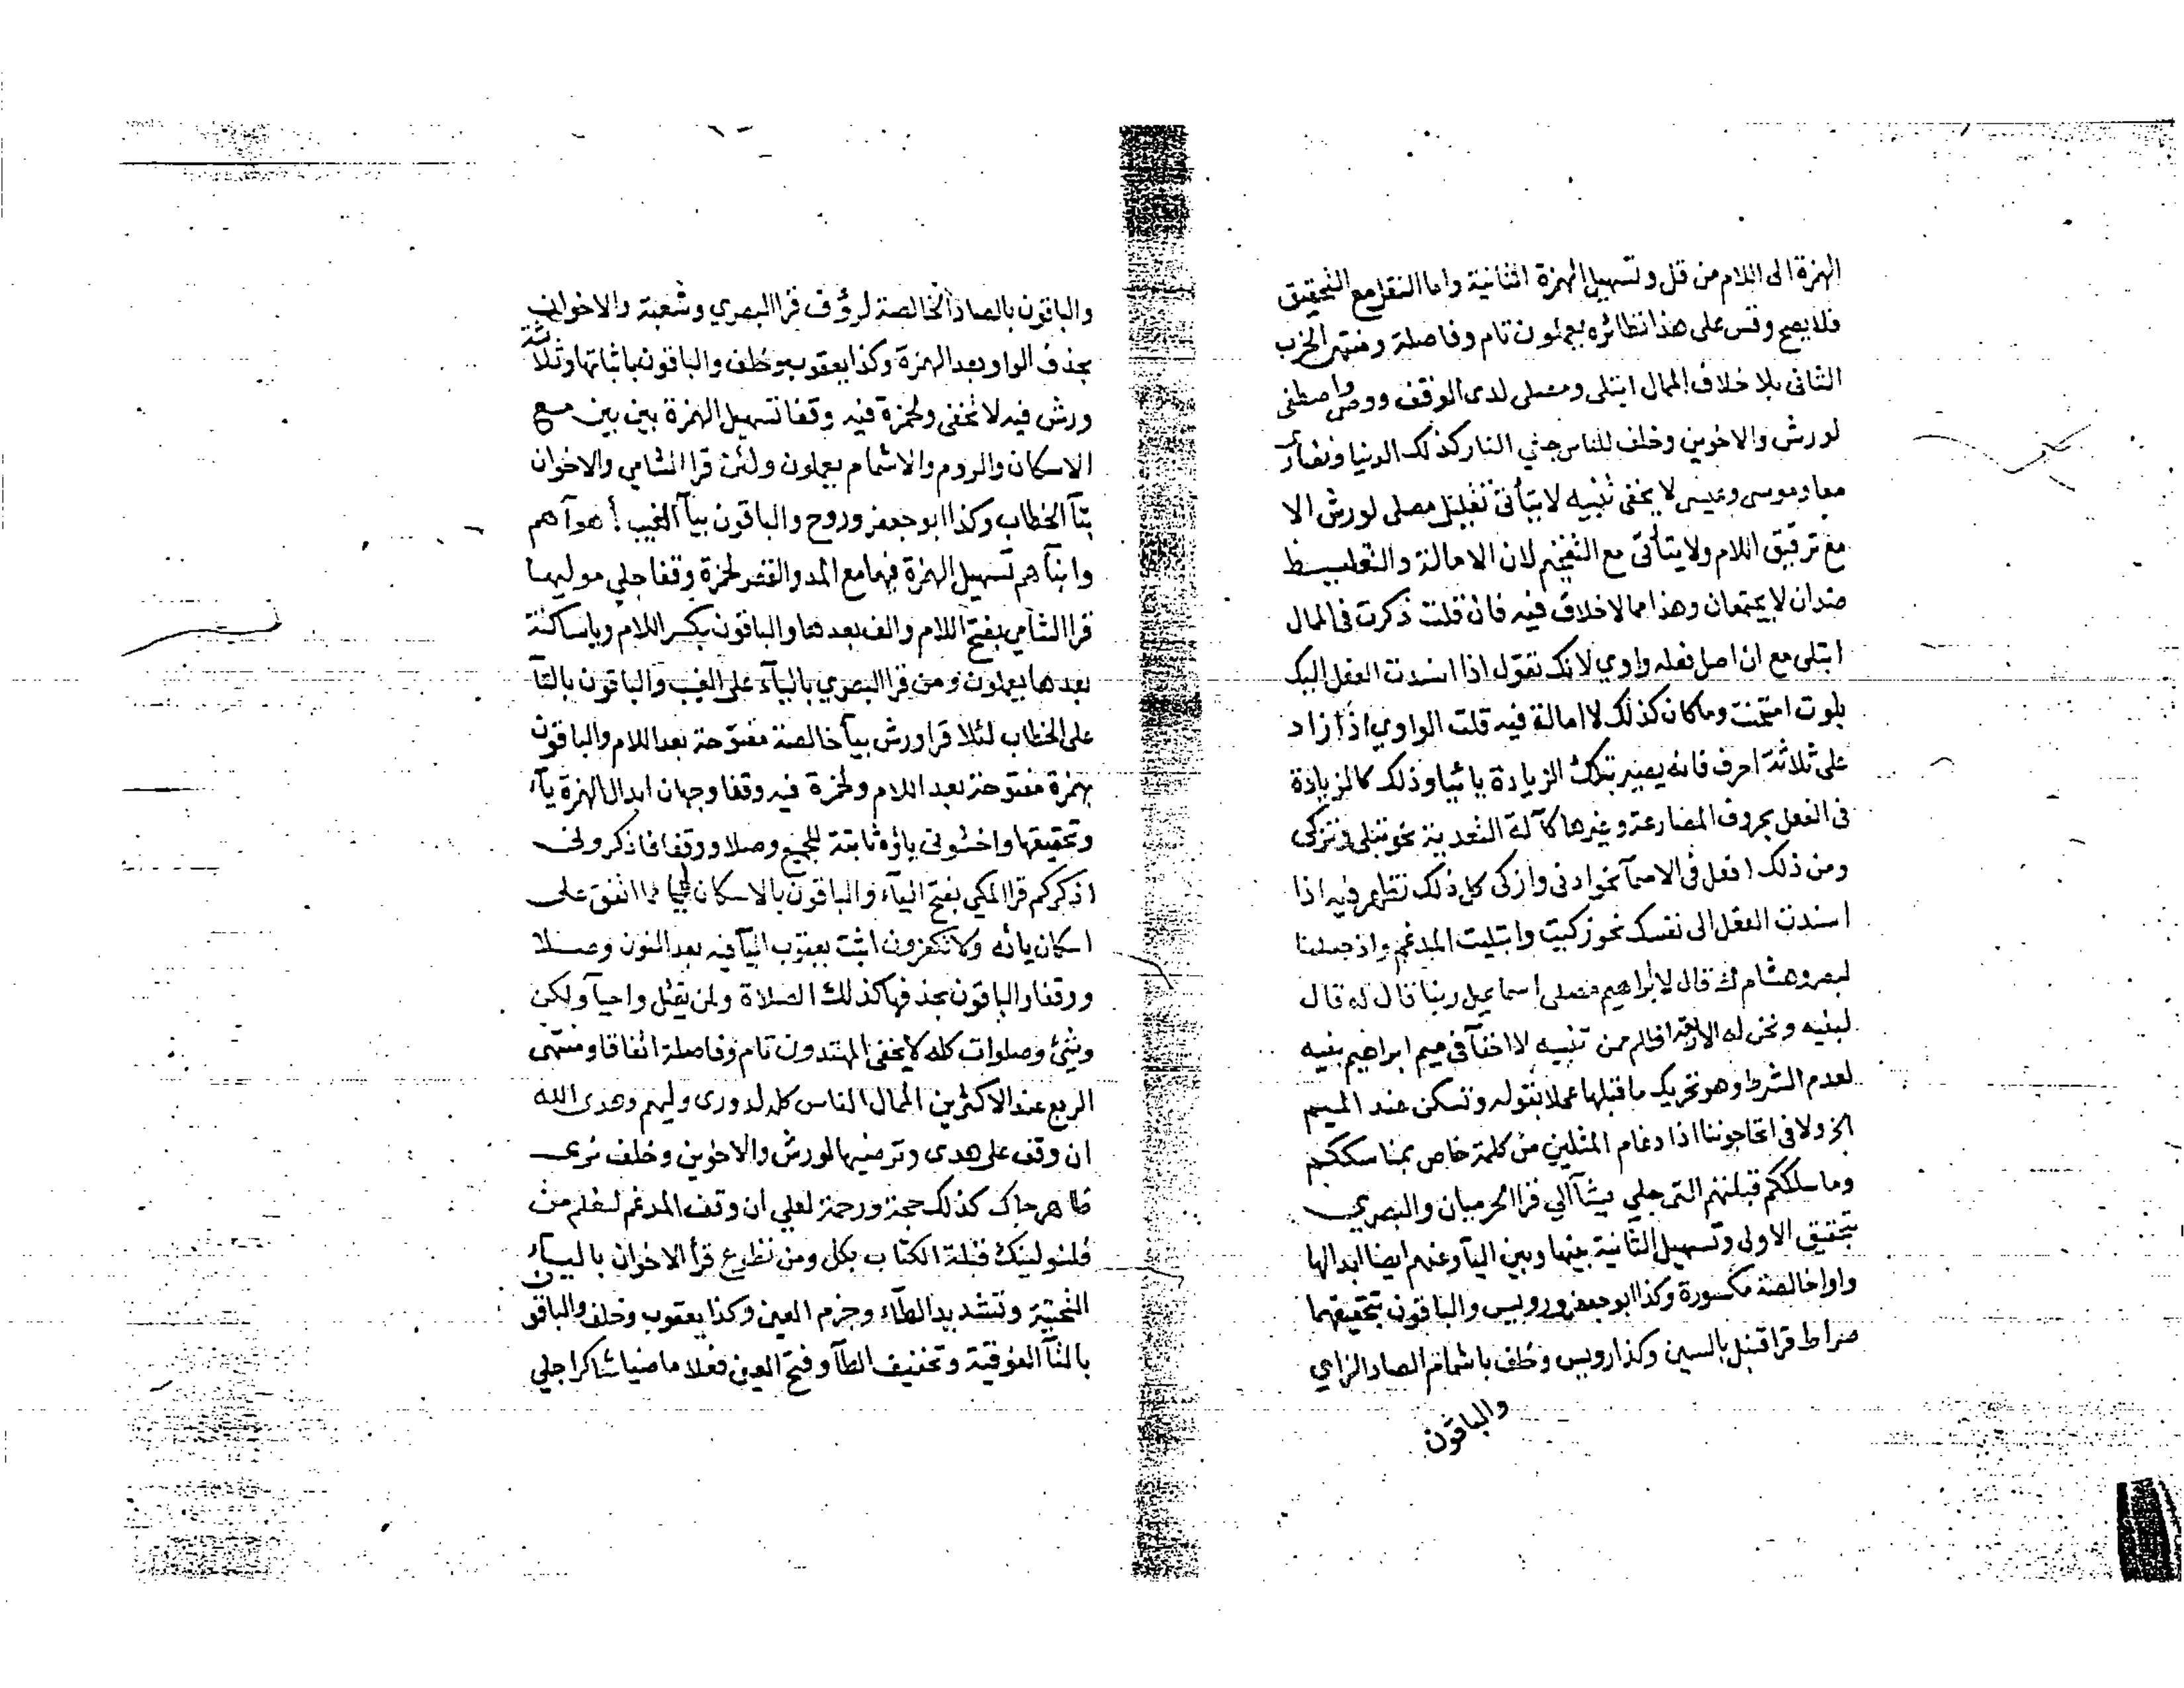 الهمزة الى اللام من قل وتسهيل الهمزة الثانية واما النقل مع التحقيق
فلا يصح وقس على هذا نظائره يعملون تام وفاصلة ومنتهى الحزب
الثانى بلا خلاف الممال ابتلى ومصلى لدى الوقف ووصى واصطفى
لورش والاخوين وخلف للناس جلي النار كذلك الدنيا ونصارى
معا وموسى وعيسى لا يخفى تنبيه لا يتأتى تغليظ مصلى لورش الا
مع ترقيق اللام ولا يتأتى مع التفخيم لان الامالة والتغليــظ
ضدان لا يجتمعان وهذا مما لا خلاف فيه فان قلت ذكرت فى الممال
ابتلى مع ان اصل فعله واوي لانك تقول اذا اسندت الفعل اليك
بلوت امتحنت وما كان كذلك لا امالة فيه قلت الواوي اذا زاد
على ثلاثة احرف فانه يصير بتلك الزيادة يائيا وذلك كالزيادة
فى الفعل بحروف المضارعة وغيرها كآلة التعدية نحو تبلى وتزكى
ومن ذلك افعل فى الاسمآ نحو ادنى وازكى كل ذلك تظهر فيه اذا
اسندت الفعل الى نفسك نحو زكيت وابتليت المدغم واذ جعلنا
لبصر وهشام لك قال لا ابراهيم مصلى اسماعيل ربنا قال له قال
لبنيه ونحن له الاربعة اظلم ممن تنبيه لا اخفآ فى ميم ابراهيم بنيه
لعدم الشرط وهو تحريك ما قبلها عملا بقوله وتسكن عند الميم
الخ ولا فى اتحاجوننا اذا دغام المثلين من كلمة خاص بمناسككم
وما سلككم قبلتهم التى جلي يشآ الي قرا الحرميان والبصري
بتحقيق الاولى وتسهيل الثانية بينها وبين اليآ وعنهم ايضا ابدالها
واوا خالصة مكسورة وكذا ابو جعفر ورويس والباقون بتحقيقهما
صراط قرا قنبل بالسين وكذا رويس وخلف باشمام الصاد الزاي
والباقون
والباقون بالصاد الخالصة لرؤف قرا البصري وشعبة والاخوان
بحذف الواو بعد الهمزة وكذا يعقوب وخلف والباقون باثباتها وثلاثة
ورش فيه لا تخفى ولحمزة فيه وقفا تسهيل الهمزة بين بين مــع
الاسكان والروم والاشمام يعملون ولئن قرا الشامي والاخوان
بتآ الخطاب وكذا ابو جعفر وروح والباقون بيآ الغيب أهوآهم
وابنآهم تسهيل الهمزة فيهما مع المد والقصر لحمزة وقفا جلي موليها
قرا الشامي بفتح اللام والف بعدها والباقون بكسر اللام وياساكنة
بعدها يعملون ومن قرا البصري باليآء على الغيب والباقون بالتآ
على الخطاب لئلا قرا ورش بيآ خالصة مفتوحة بعد اللام والباقون
بهمزة مفتوحة بعد اللام ولحمزة فيه وقفا وجهان ابدال الهمزة يآء
وتحقيقها واخشونى ياؤه ثابتة للجميع وصلا ووقفا فاذكرونى
اذكركم قرا المكي بفتح اليآء والباقون بالاسكان لي مما اتفق على
اسكان يائه ولا تكفرون اثبت يعقوب اليآ فيه بعد النون وصــلا
ووقفا والباقون بحذفها كذلك الصلاة ولمن يقتل واحيآ ولكن
وشئ وصلوات كله لا يخفى المهتدون تام وفاصلة اتفاقا ومنتهى
الربع عند الاكثرين الممال الناس كله لدورى وليهم وهدى الله
ان وقف على هدى وترضيها لورش والاخوين وخلف نرى
ظاهر جاك كذلك حجة ورحمة لعلي ان وقف المدغم لنعلم من
فلنولينك قبلة الكتاب بكل ومن تطوع قرأ الاخوان باليــآء
التحتية وتشديد الطآء وجزم العين وكذا يعقوب وخلف والباقون
بالتآ الفوقية وتخفيف الطآ وفتح العين فعلا ماضيا شاكرا جلي